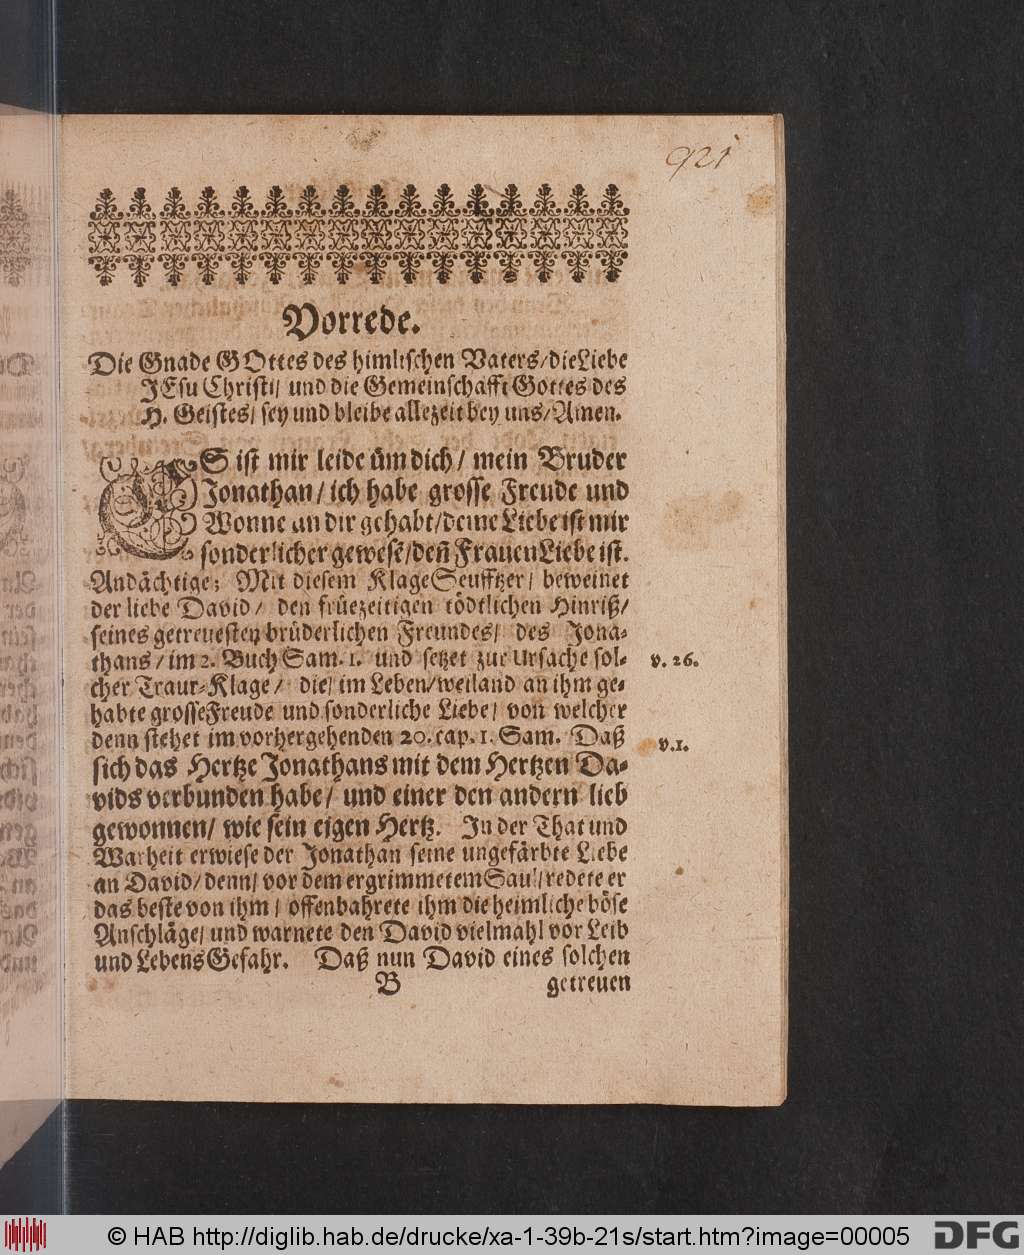 921
Vorrede.
Die Gnade GOttes des himlischen Vaters/die Liebe
JEsu Christi/ und die Gemeinschafft Gottes des
H. Geistes/ sey und bleibe allezeit bey uns/Amen.
ES ist mir leide üm dich/ mein Bruder
Jonathan/ ich habe grosse Freude und
Wonne an dir gehabt/deine Liebe ist mir
sonderlicher gewesẽ/deñ FrauenLiebe ist.
Andächtige; Mit diesem KlageSeufftzer/ beweinet
der liebe David/ den frůezeitigen tödtlichen Hinriß/
seines getreuesten brůderlichen Freundes/ des Jona-
thans/ im 2. Buch Sam. 1. und setzet zur Ursache sol-
v. 26.
cher Traur-Klage/ die/ im Leben/weiland an ihm ge-
habte grosseFreude und sonderliche Liebe/ von welcher
denn stehet im vorhergehenden 20. cap. 1. Sam. Daß
v.1.
sich das Hertze Jonathans mit dem Hertzen Da-
vids verbunden habe/ und einer den andern lieb
gewonnen/ wie sein eigen Hertz. In der That und
Warheit erwiese der Jonathan seine ungefärbte Liebe
an David/ denn/ vor dem ergrimmetem Saul/ redete er
das beste von ihm/ offenbahrete ihm die heimliche böse
Anschläge/ und warnete den David vielmahl vor Leib
und LebensGefahr. Daß nun David eines solchen
B getreuen
© HAB http://diglib.hab.de/drucke/xa-1-39b-21s/start.htm?image=00005
DFG